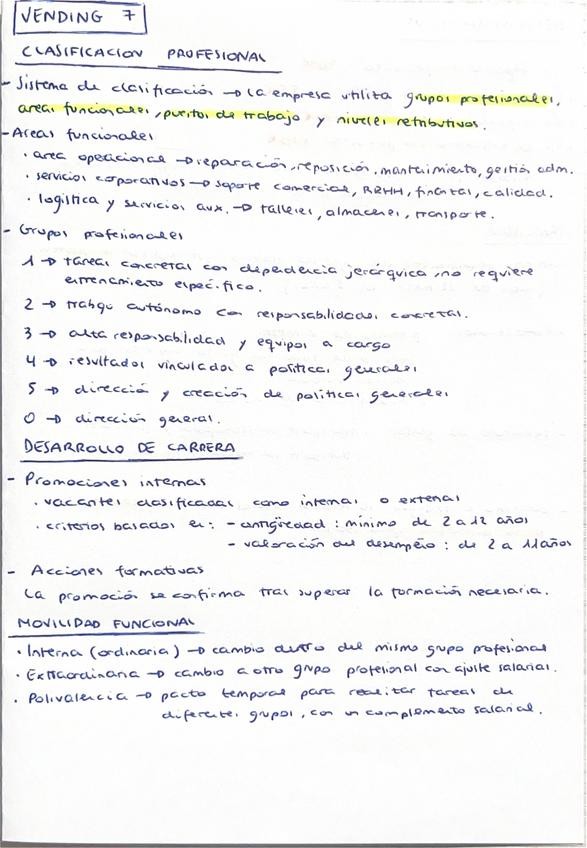 VENDING 7
CLASIFICACION PROFESIONAL
- Sistema de clasificación → La empresa utiliza grupos profesionales,
areas funcionales, puestos de trabajo y niveles retributivos.
- Areas funcionales
· area operacional → reparación, reposición, mantenimiento, gestión adm.
· servicios corporativos → soporte comercial, RRHH, finanzas, calidad.
· logística y servicios aux. → talleres, almacenes, transporte.
- Grupos profesionales
1 → tareas concretas con dependencia jerárquica, no requiere
entrenamiento específico.
2 → trabajo autónomo con responsabilidades concretas.
3 → alta responsabilidad y equipos a cargo
4 → resultados vinculados a políticas generales
5 → dirección y creación de políticas generales
0 → dirección general.
DESARROLLO DE CARRERA
- Promociones internas
· vacantes clasificadas como internas o externas
· criterios basados en: - antigüedad: mínimo de 2 a 12 años
- valoración del desempeño: de 2 a 11 años
- Acciones formativas
La promoción se confirma tras superar la formación necesaria.
MOVILIDAD FUNCIONAL
· Interna (ordinaria) → cambio dentro del mismo grupo profesional
· Extraordinaria → cambio a otro grupo profesional con ajuste salarial.
· Polivalencia → pacto temporal para realizar tareas de
diferentes grupos, con un complemento salarial.